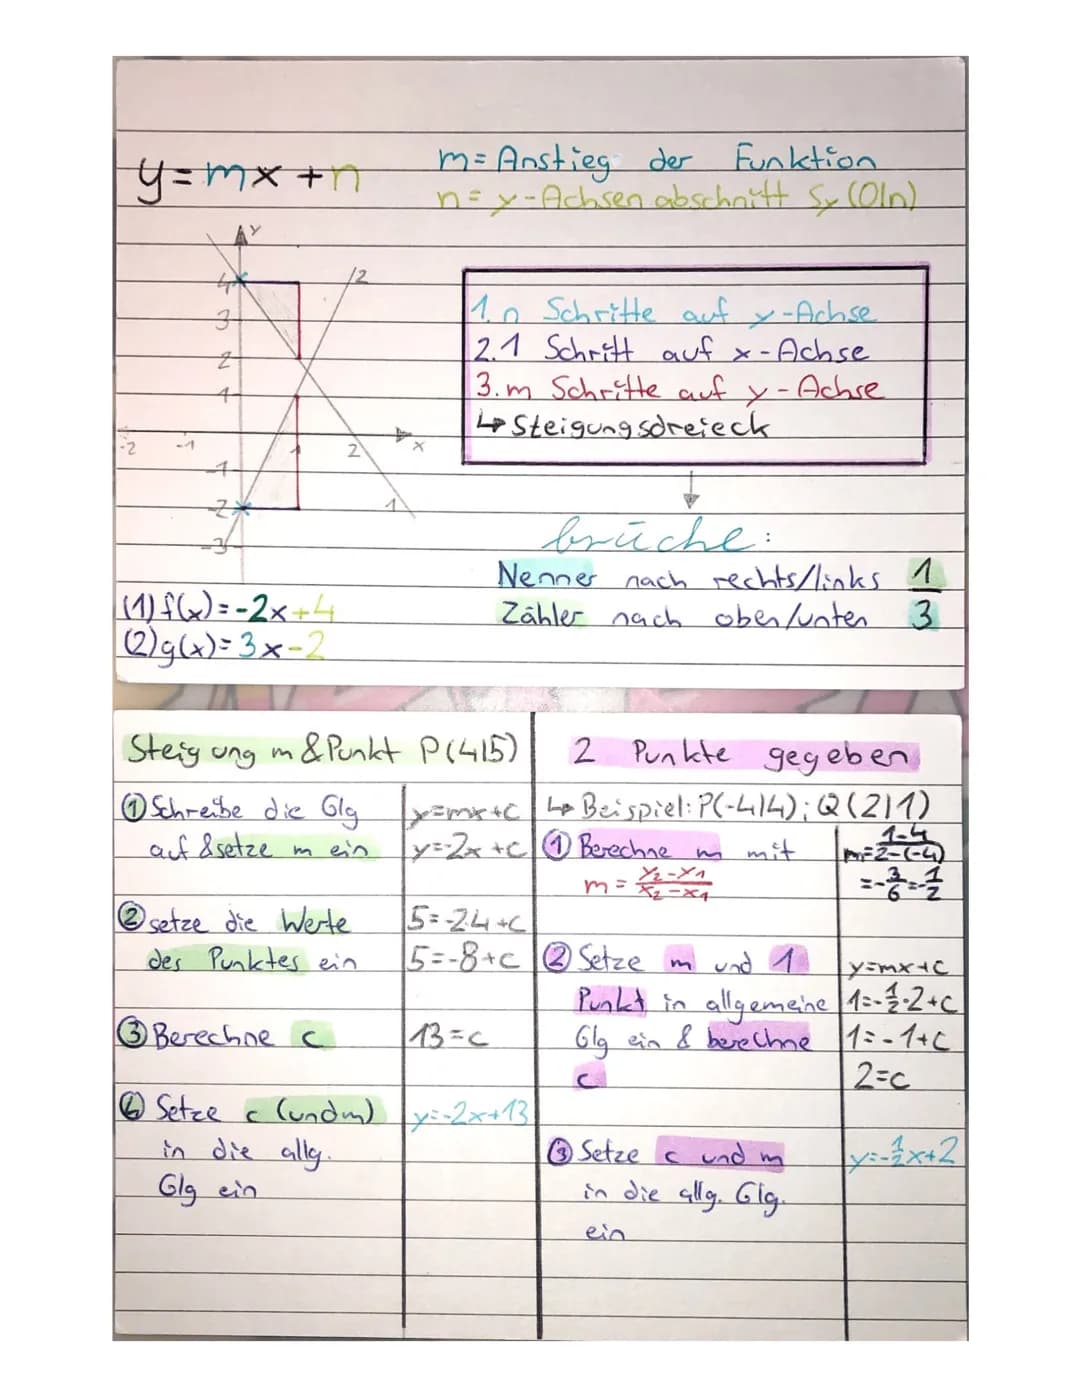 y=mx+n
m=Anstieg der Funktion
n=y-Achsenabschnitt Sy(0|n)
y
4
3
2
1
-2 -1 1 2 x
-1
-2
-3
2
1
1. n Schritte auf y-Achse
2. 1 Schritt auf x-Achse
3. m Schritte auf y-Achse
↳ Steigungsdreieck
brüche:
Nenner nach rechts/links 1
Zähler nach oben/unten 3
(1) f(x)=-2x+4
(2) g(x)=3x-2
Steigung m & Punkt P(4|5)
① Schreibe die Glg y=mx+c
auf & setze m ein y=-2x+c
② setze die Werte 5=-2·4+c
des Punktes ein 5=-8+c
③ Berechne c 13=c
④ Setze c (und m) y=-2x+13
in die allg.
Glg ein
2 Punkte gegeben
↳ Beispiel: P(-4|4); Q(2|1)
① Berechne m mit m=1-4/2-(-4)
m=y₂-y₁/x₂-x₁ =-3/6=-1/2
② Setze m und 1 y=mx+c
Punkt in allgemeine 1=-1/2·2+c
Glg ein & berechne 1=-1+c
c 2=c
③ Setze c und m y=-1/2x+2
in die allg. Glg.
ein